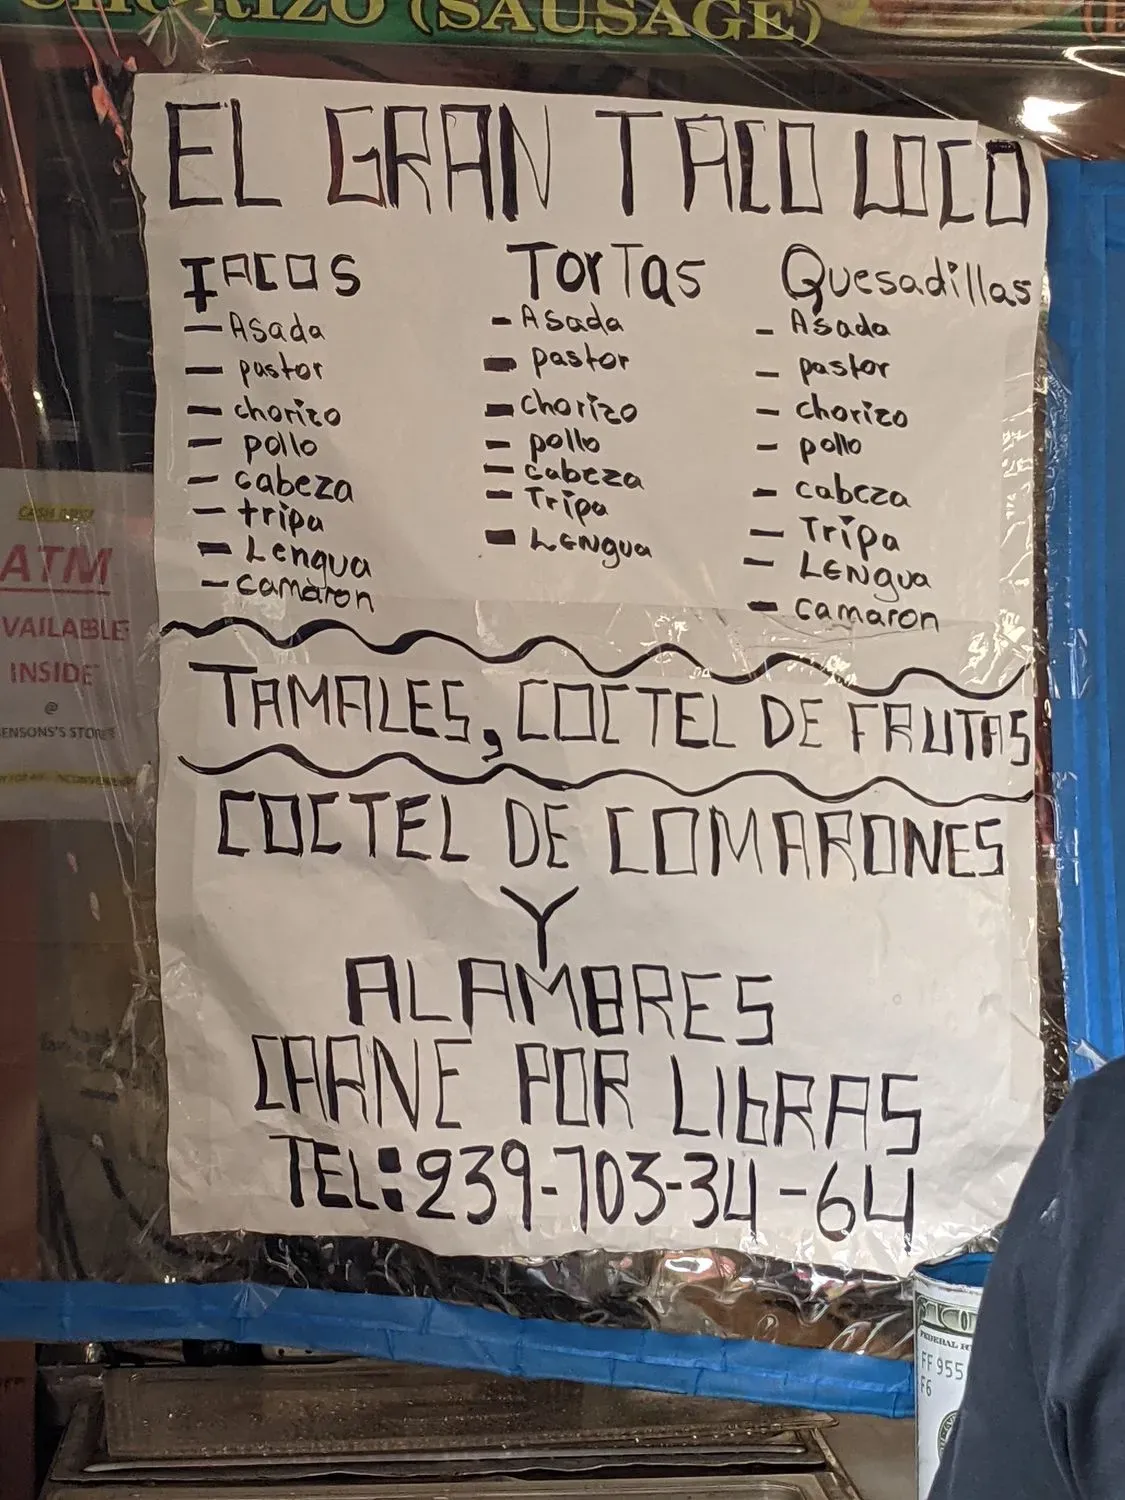 CHORIZO (SAUSAGE)
EL GRAN TACO LOCO
TACOS
- Asada
- pastor
- chorizo
- pollo
- cabeza
- tripa
- Lengua
- camaron
TorTas
- Asada
- pastor
- chorizo
- pollo
- cabeza
- Tripa
- LENgua
Quesadillas
- Asada
- pastor
- chorizo
- pollo
- cabeza
- Tripa
- LENgua
- camaron
TAMALES, COCTEL DE FRUTAS
COCTEL DE COMARONES
Y
ALAMBRES
CARNE POR LIbRAS
TEL: 239-703-34-64
ATM
VAILABLE
INSIDE
@
ENSONS'S STORE
FEDERAL R
FF 955
F6